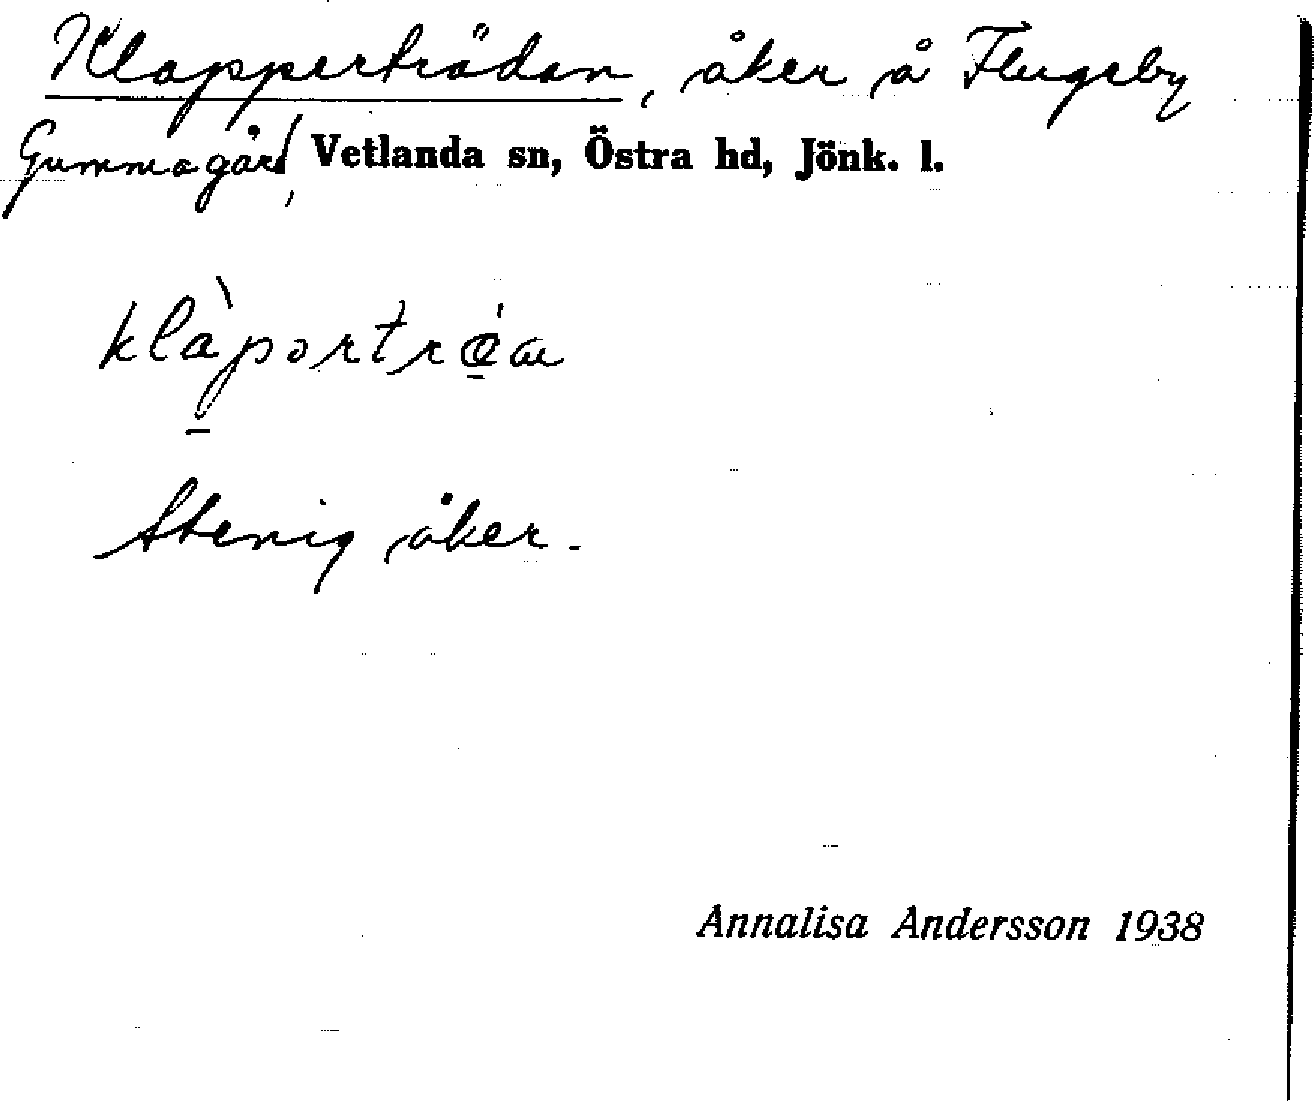 Klapperträdan, åker å Flugeby
Gummagård, Vetlanda sn, Östra hd, Jönk. l.
Stenig åker.
Annalisa Andersson 1938